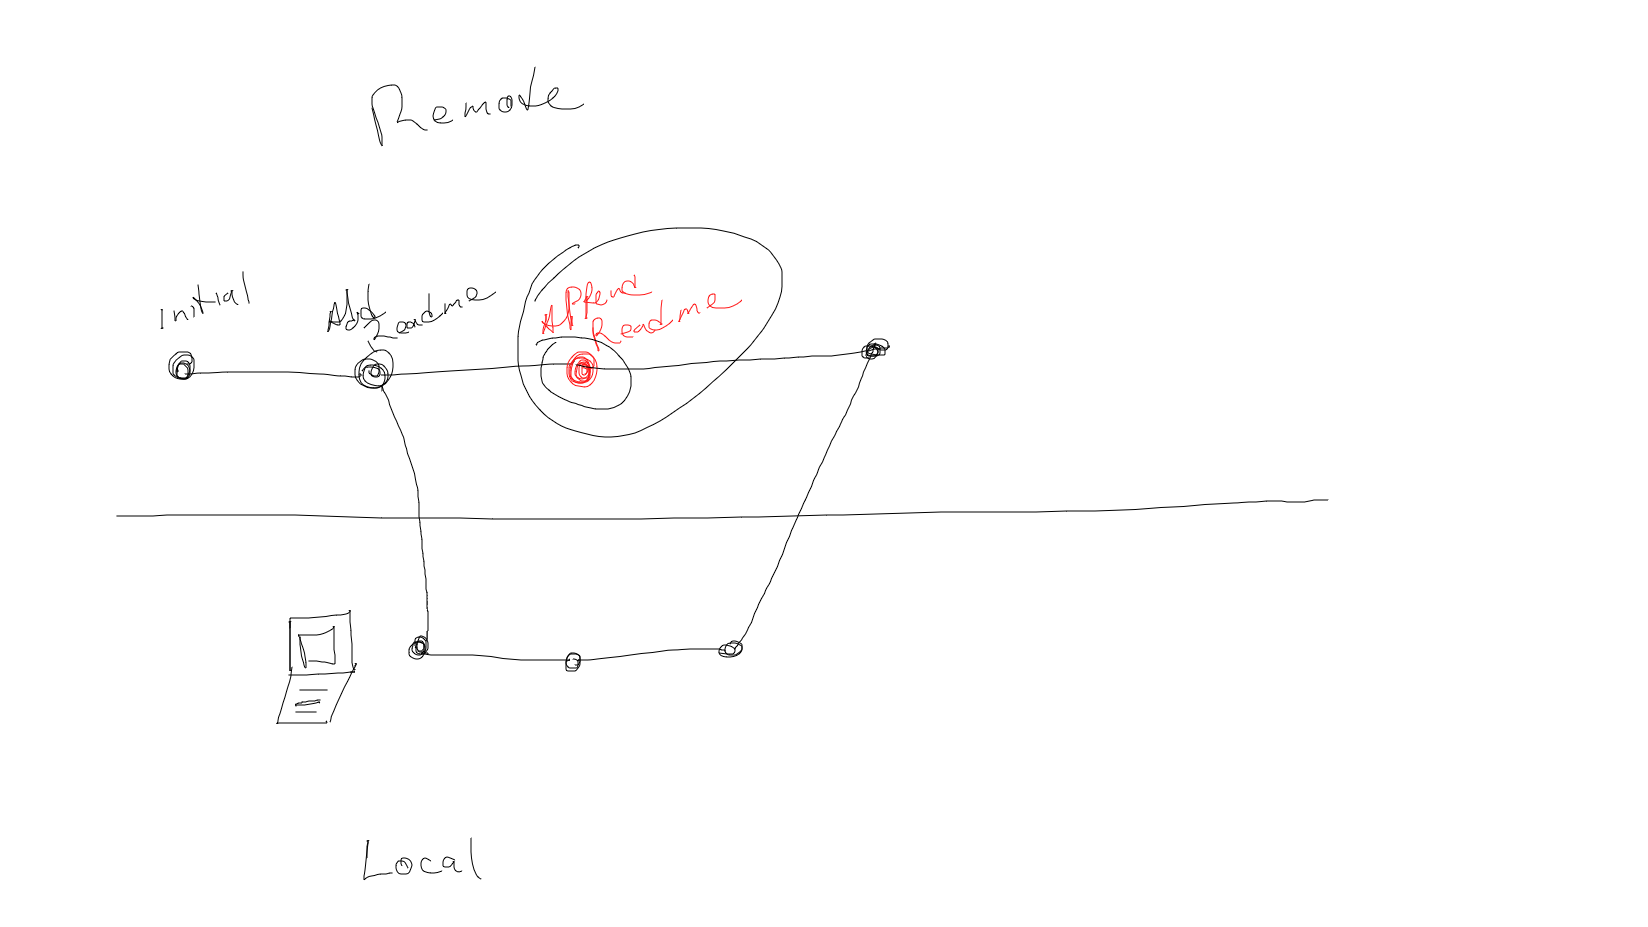 Remote
initial
Add
Readme
Append
Readme
Local